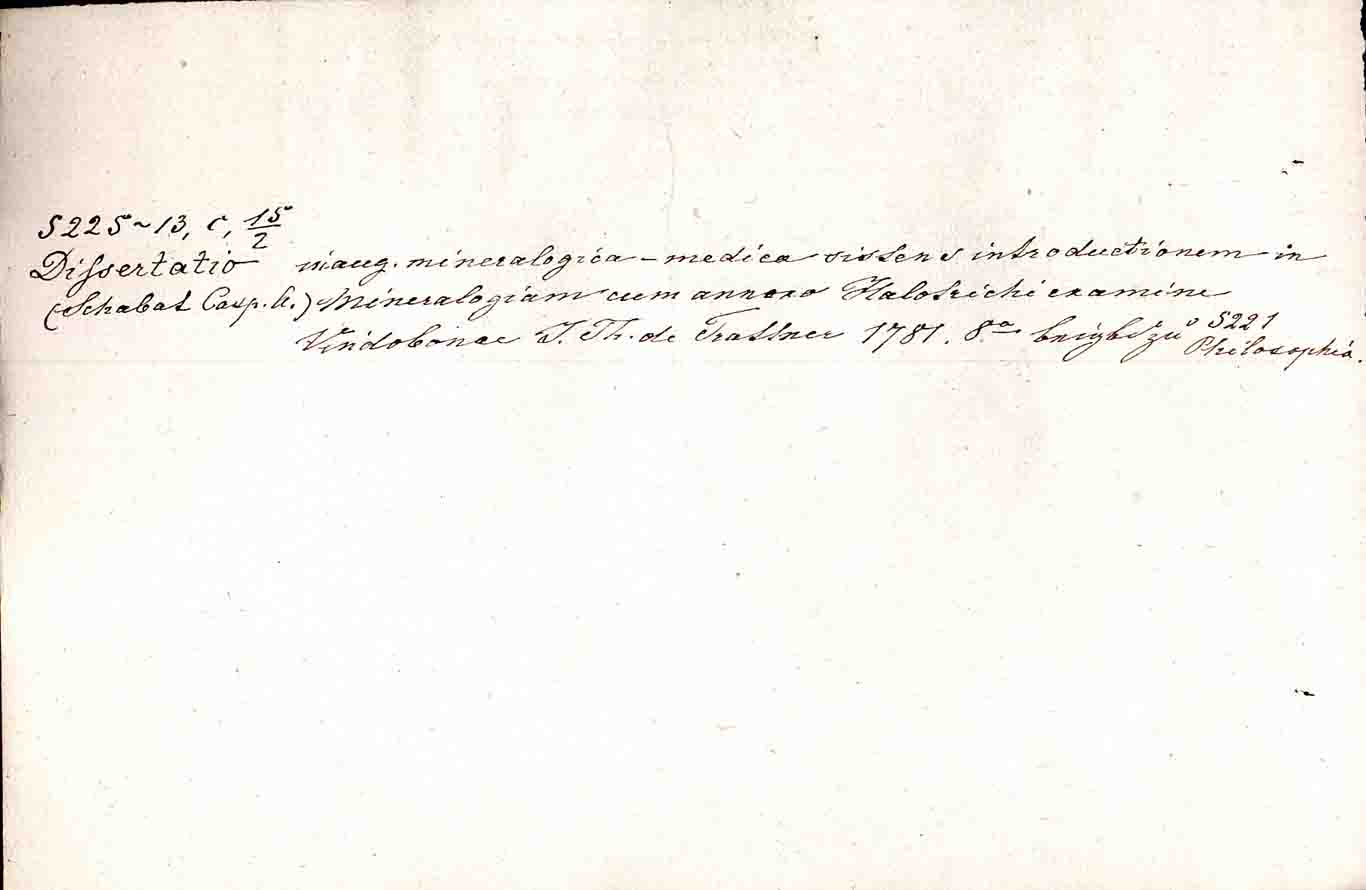 S225~13, C, 15/2
Dissertatio inaug. mineralogica-medica sistens introductionem in
(Schabat Casp. A.) Mineralogiam cum annexo Halotrichi examine
Vindobonae J. Th. de Trattner 1781. 8º S221
Philosophia.